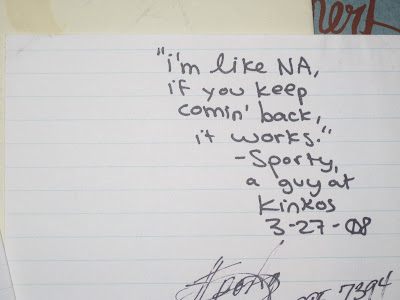 "i'm like NA,
if you keep
comin' back,
it works."
-Sporty,
a guy at
Kinkos
3-27-08
7394